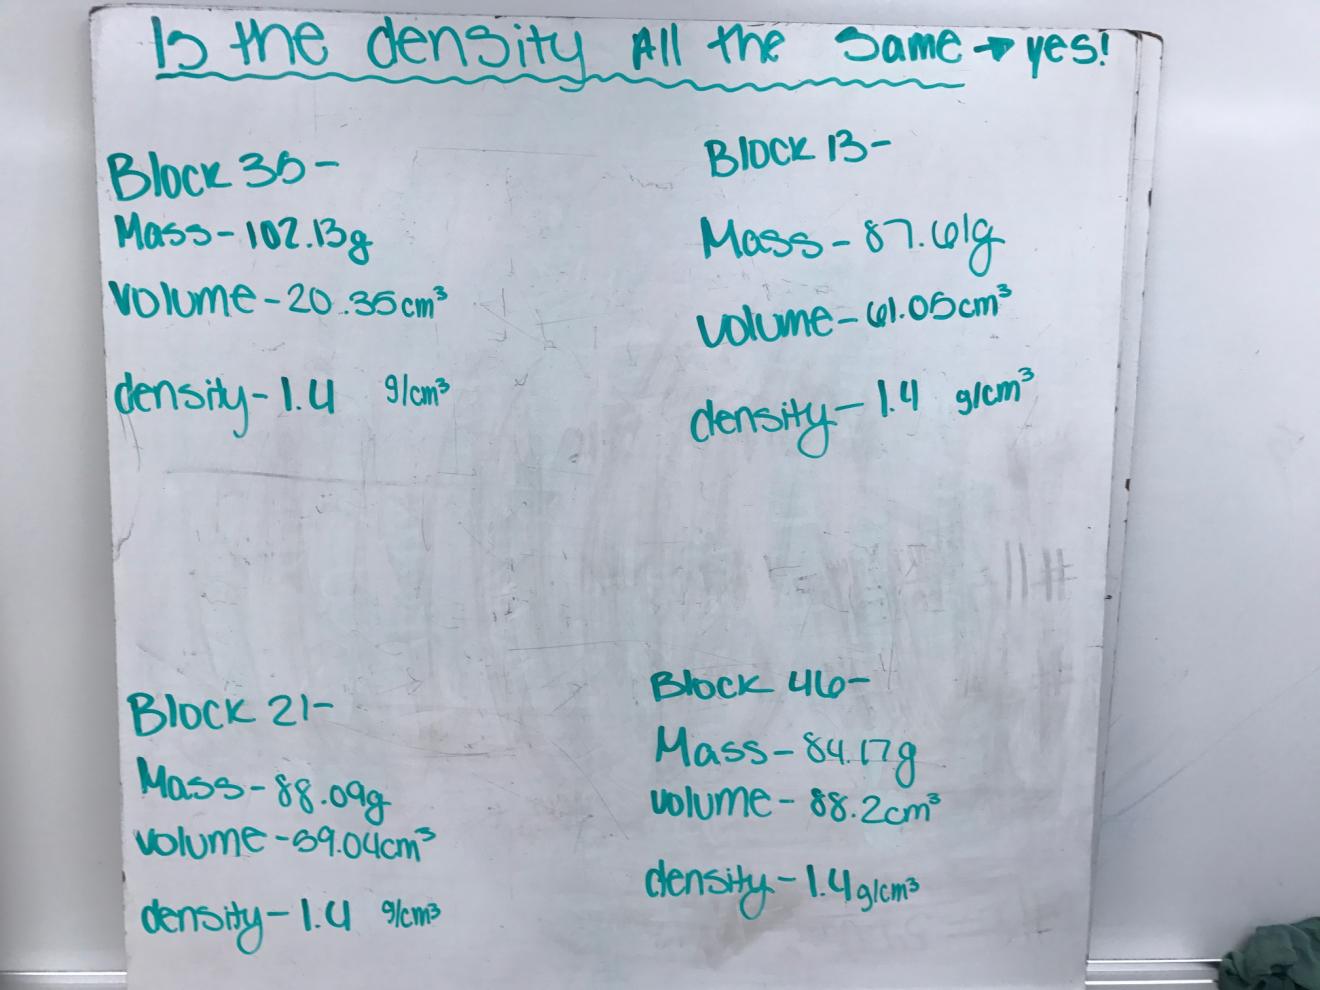 Is the density All the same → yes!
Block 35-
Mass-102.13g
volume-20.35cm³
density-1.4 g/cm³
Block 13-
Mass-87.61g
volume-61.05cm³
density-1.4 g/cm³
Block 21-
Mass-88.09g
volume-59.04cm³
density-1.4 g/cm³
Block 46-
Mass-84.17g
volume-88.2cm³
density-1.4g/cm³